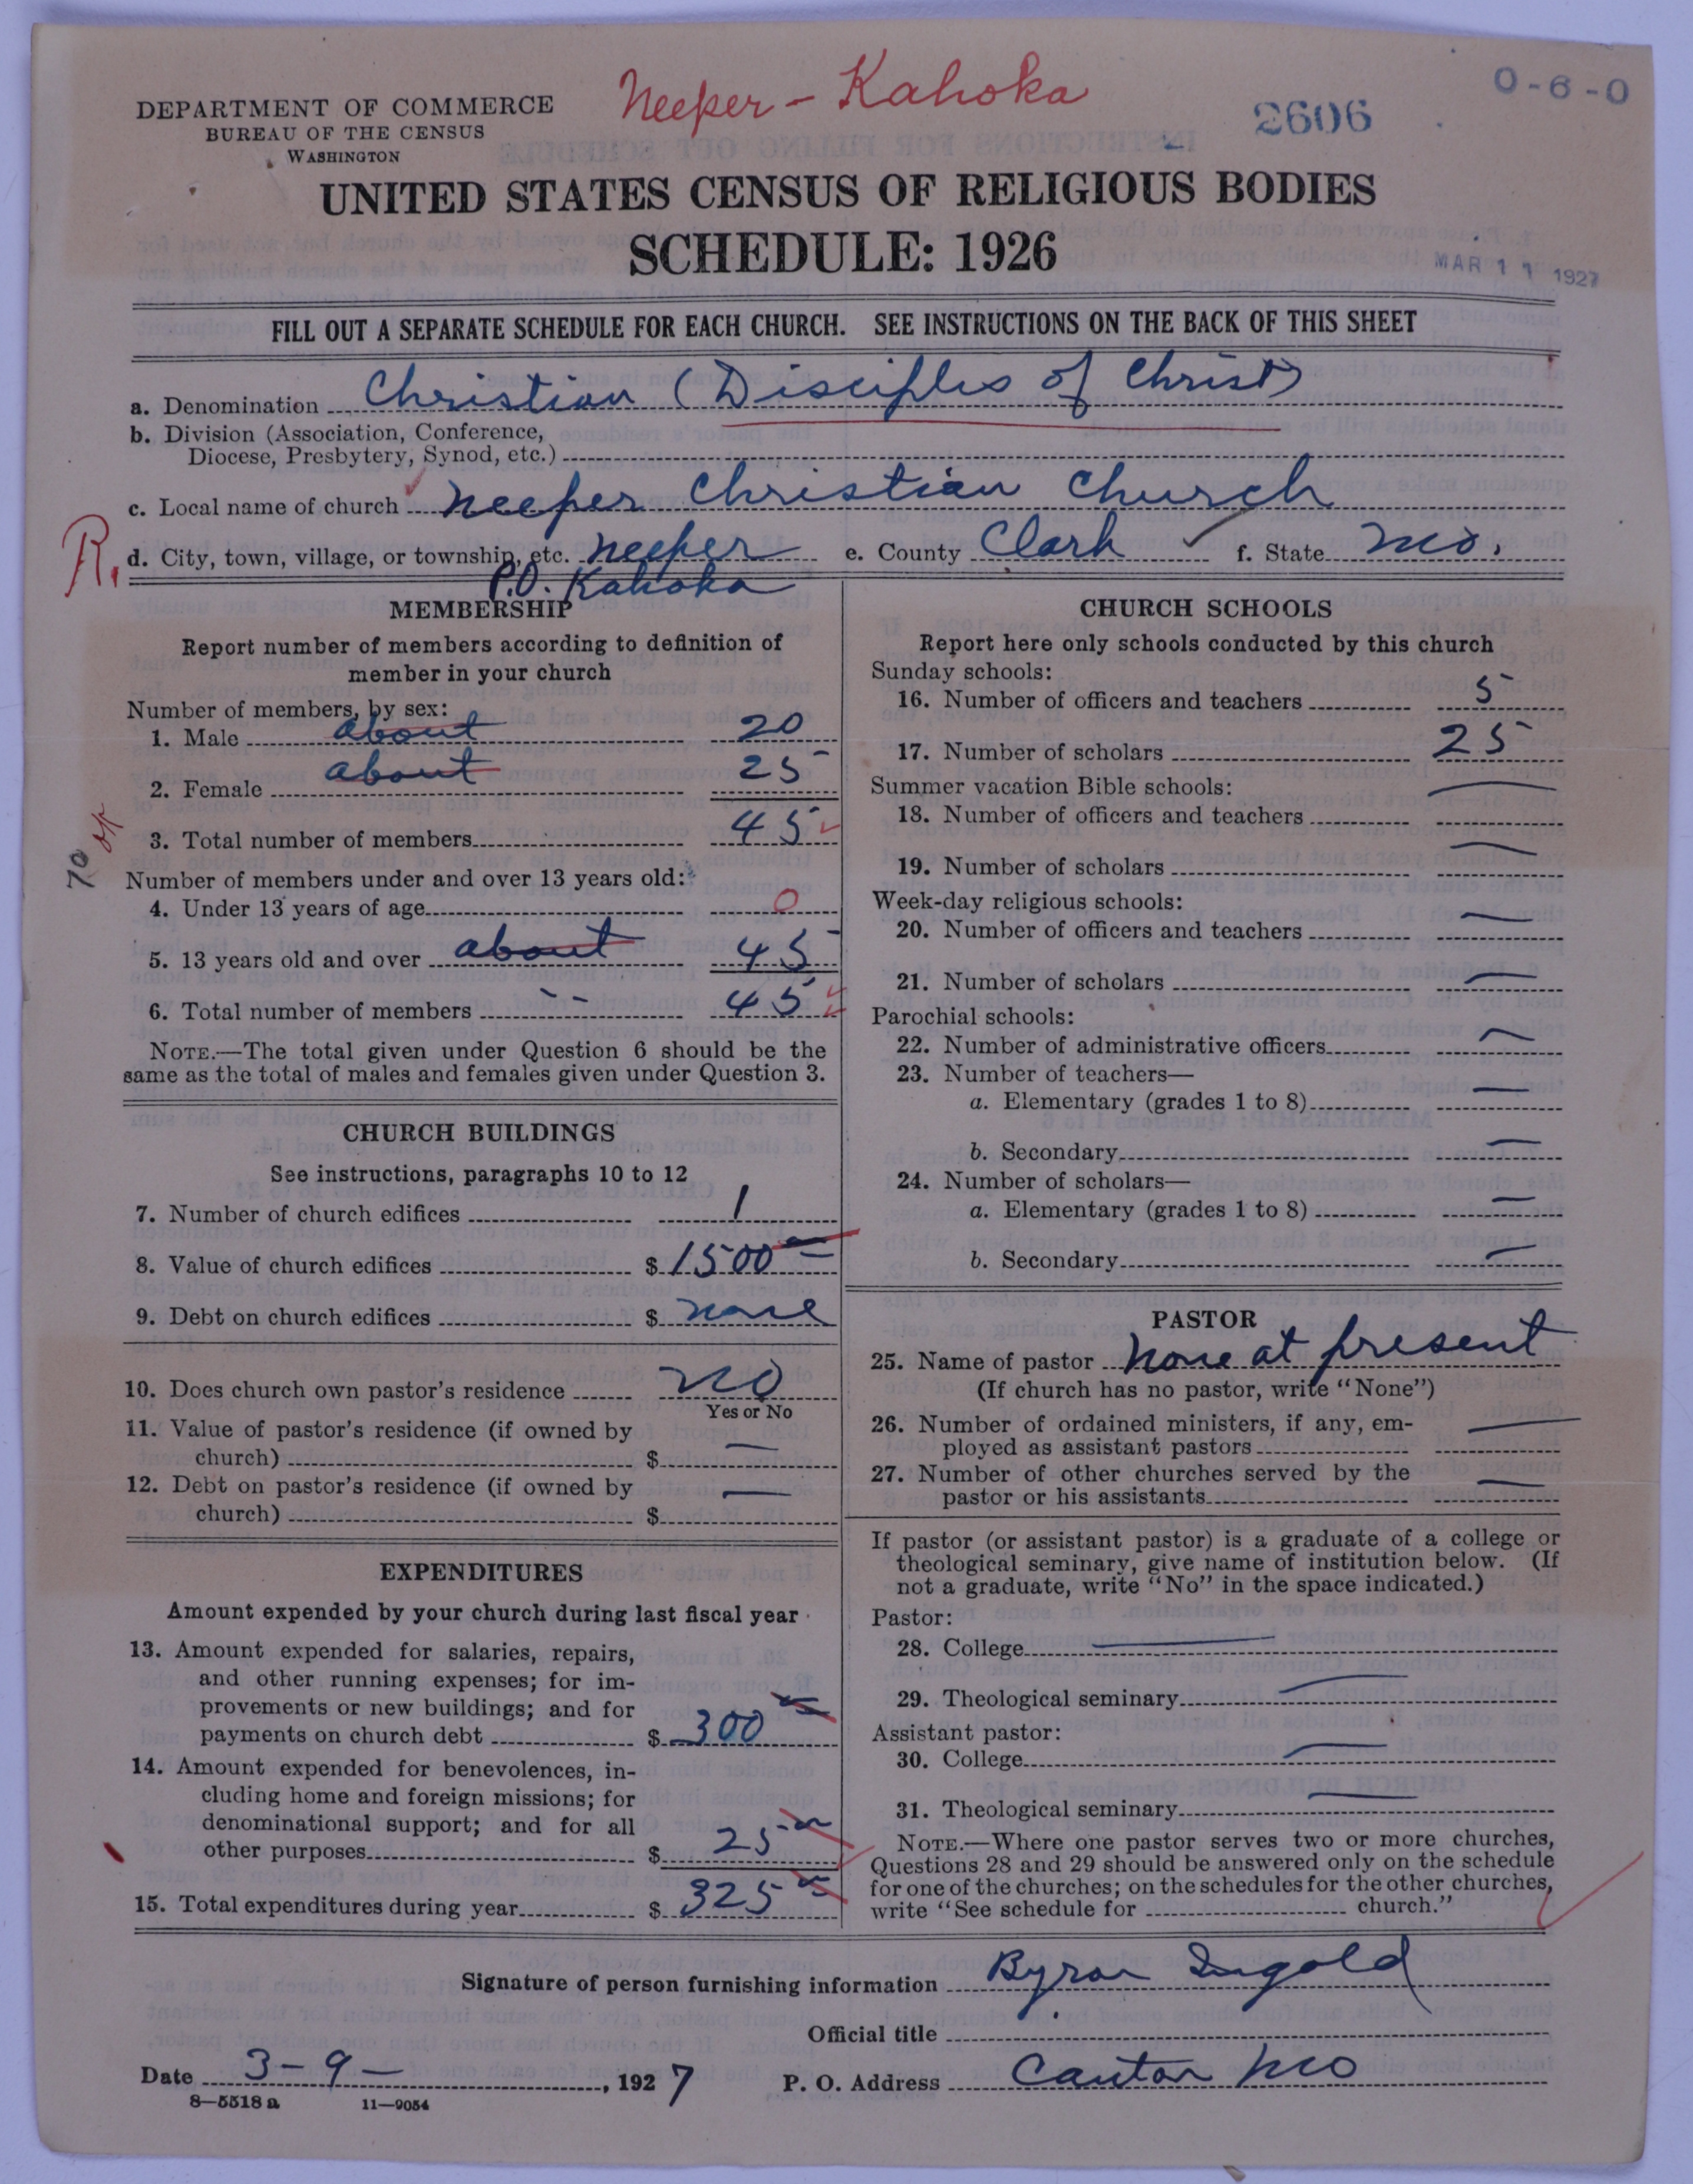 Neeper - Kahoka
0-6-0
DEPARTMENT OF COMMERCE
BUREAU OF THE CENSUS
WASHINGTON
2606
UNITED STATES CENSUS OF RELIGIOUS BODIES
SCHEDULE: 1926
MAR 11 1927
FILL OUT A SEPARATE SCHEDULE FOR EACH CHURCH. SEE INSTRUCTIONS ON THE BACK OF THIS SHEET
a. Denomination Christian (Disciples of Christ)
b. Division (Association, Conference,
Diocese, Presbytery, Synod, etc.)
c. Local name of church Neeper Christian Church
R. d. City, town, village, or township, etc. Neeper e. County Clark f. State Mo.
P.O. Kahoka
MEMBERSHIP
Report number of members according to definition of
member in your church
Number of members, by sex:
1. Male about 20
2. Female about 25
3. Total number of members 45
70
Number of members under and over 13 years old:
4. Under 13 years of age 0
5. 13 years old and over about 45
6. Total number of members 45
NOTE.—The total given under Question 6 should be the
same as the total of males and females given under Question 3.
CHURCH BUILDINGS
See instructions, paragraphs 10 to 12
7. Number of church edifices 1
8. Value of church edifices $ 1500
9. Debt on church edifices $ none
10. Does church own pastor's residence NO
Yes or No
11. Value of pastor's residence (if owned by
church) $ —
12. Debt on pastor's residence (if owned by
church) $ —
EXPENDITURES
Amount expended by your church during last fiscal year
13. Amount expended for salaries, repairs,
and other running expenses; for im-
provements or new buildings; and for
payments on church debt $ 300
14. Amount expended for benevolences, in-
cluding home and foreign missions; for
denominational support; and for all
other purposes $ 25
15. Total expenditures during year $ 325
CHURCH SCHOOLS
Report here only schools conducted by this church
Sunday schools:
16. Number of officers and teachers 5
17. Number of scholars 25
Summer vacation Bible schools:
18. Number of officers and teachers —
19. Number of scholars —
Week-day religious schools:
20. Number of officers and teachers —
21. Number of scholars —
Parochial schools:
22. Number of administrative officers —
23. Number of teachers—
a. Elementary (grades 1 to 8) —
b. Secondary —
24. Number of scholars—
a. Elementary (grades 1 to 8) —
b. Secondary —
PASTOR
25. Name of pastor None at present
(If church has no pastor, write "None")
26. Number of ordained ministers, if any, em-
ployed as assistant pastors —
27. Number of other churches served by the
pastor or his assistants —
If pastor (or assistant pastor) is a graduate of a college or
theological seminary, give name of institution below. (If
not a graduate, write "No" in the space indicated.)
Pastor:
28. College —
29. Theological seminary —
Assistant pastor:
30. College —
31. Theological seminary —
NOTE.—Where one pastor serves two or more churches,
Questions 28 and 29 should be answered only on the schedule
for one of the churches; on the schedules for the other churches,
write "See schedule for church."
Signature of person furnishing information Byron Ingold
Official title
Date 3-9-, 1927 P. O. Address Canton Mo
8—5518 a 11—9054